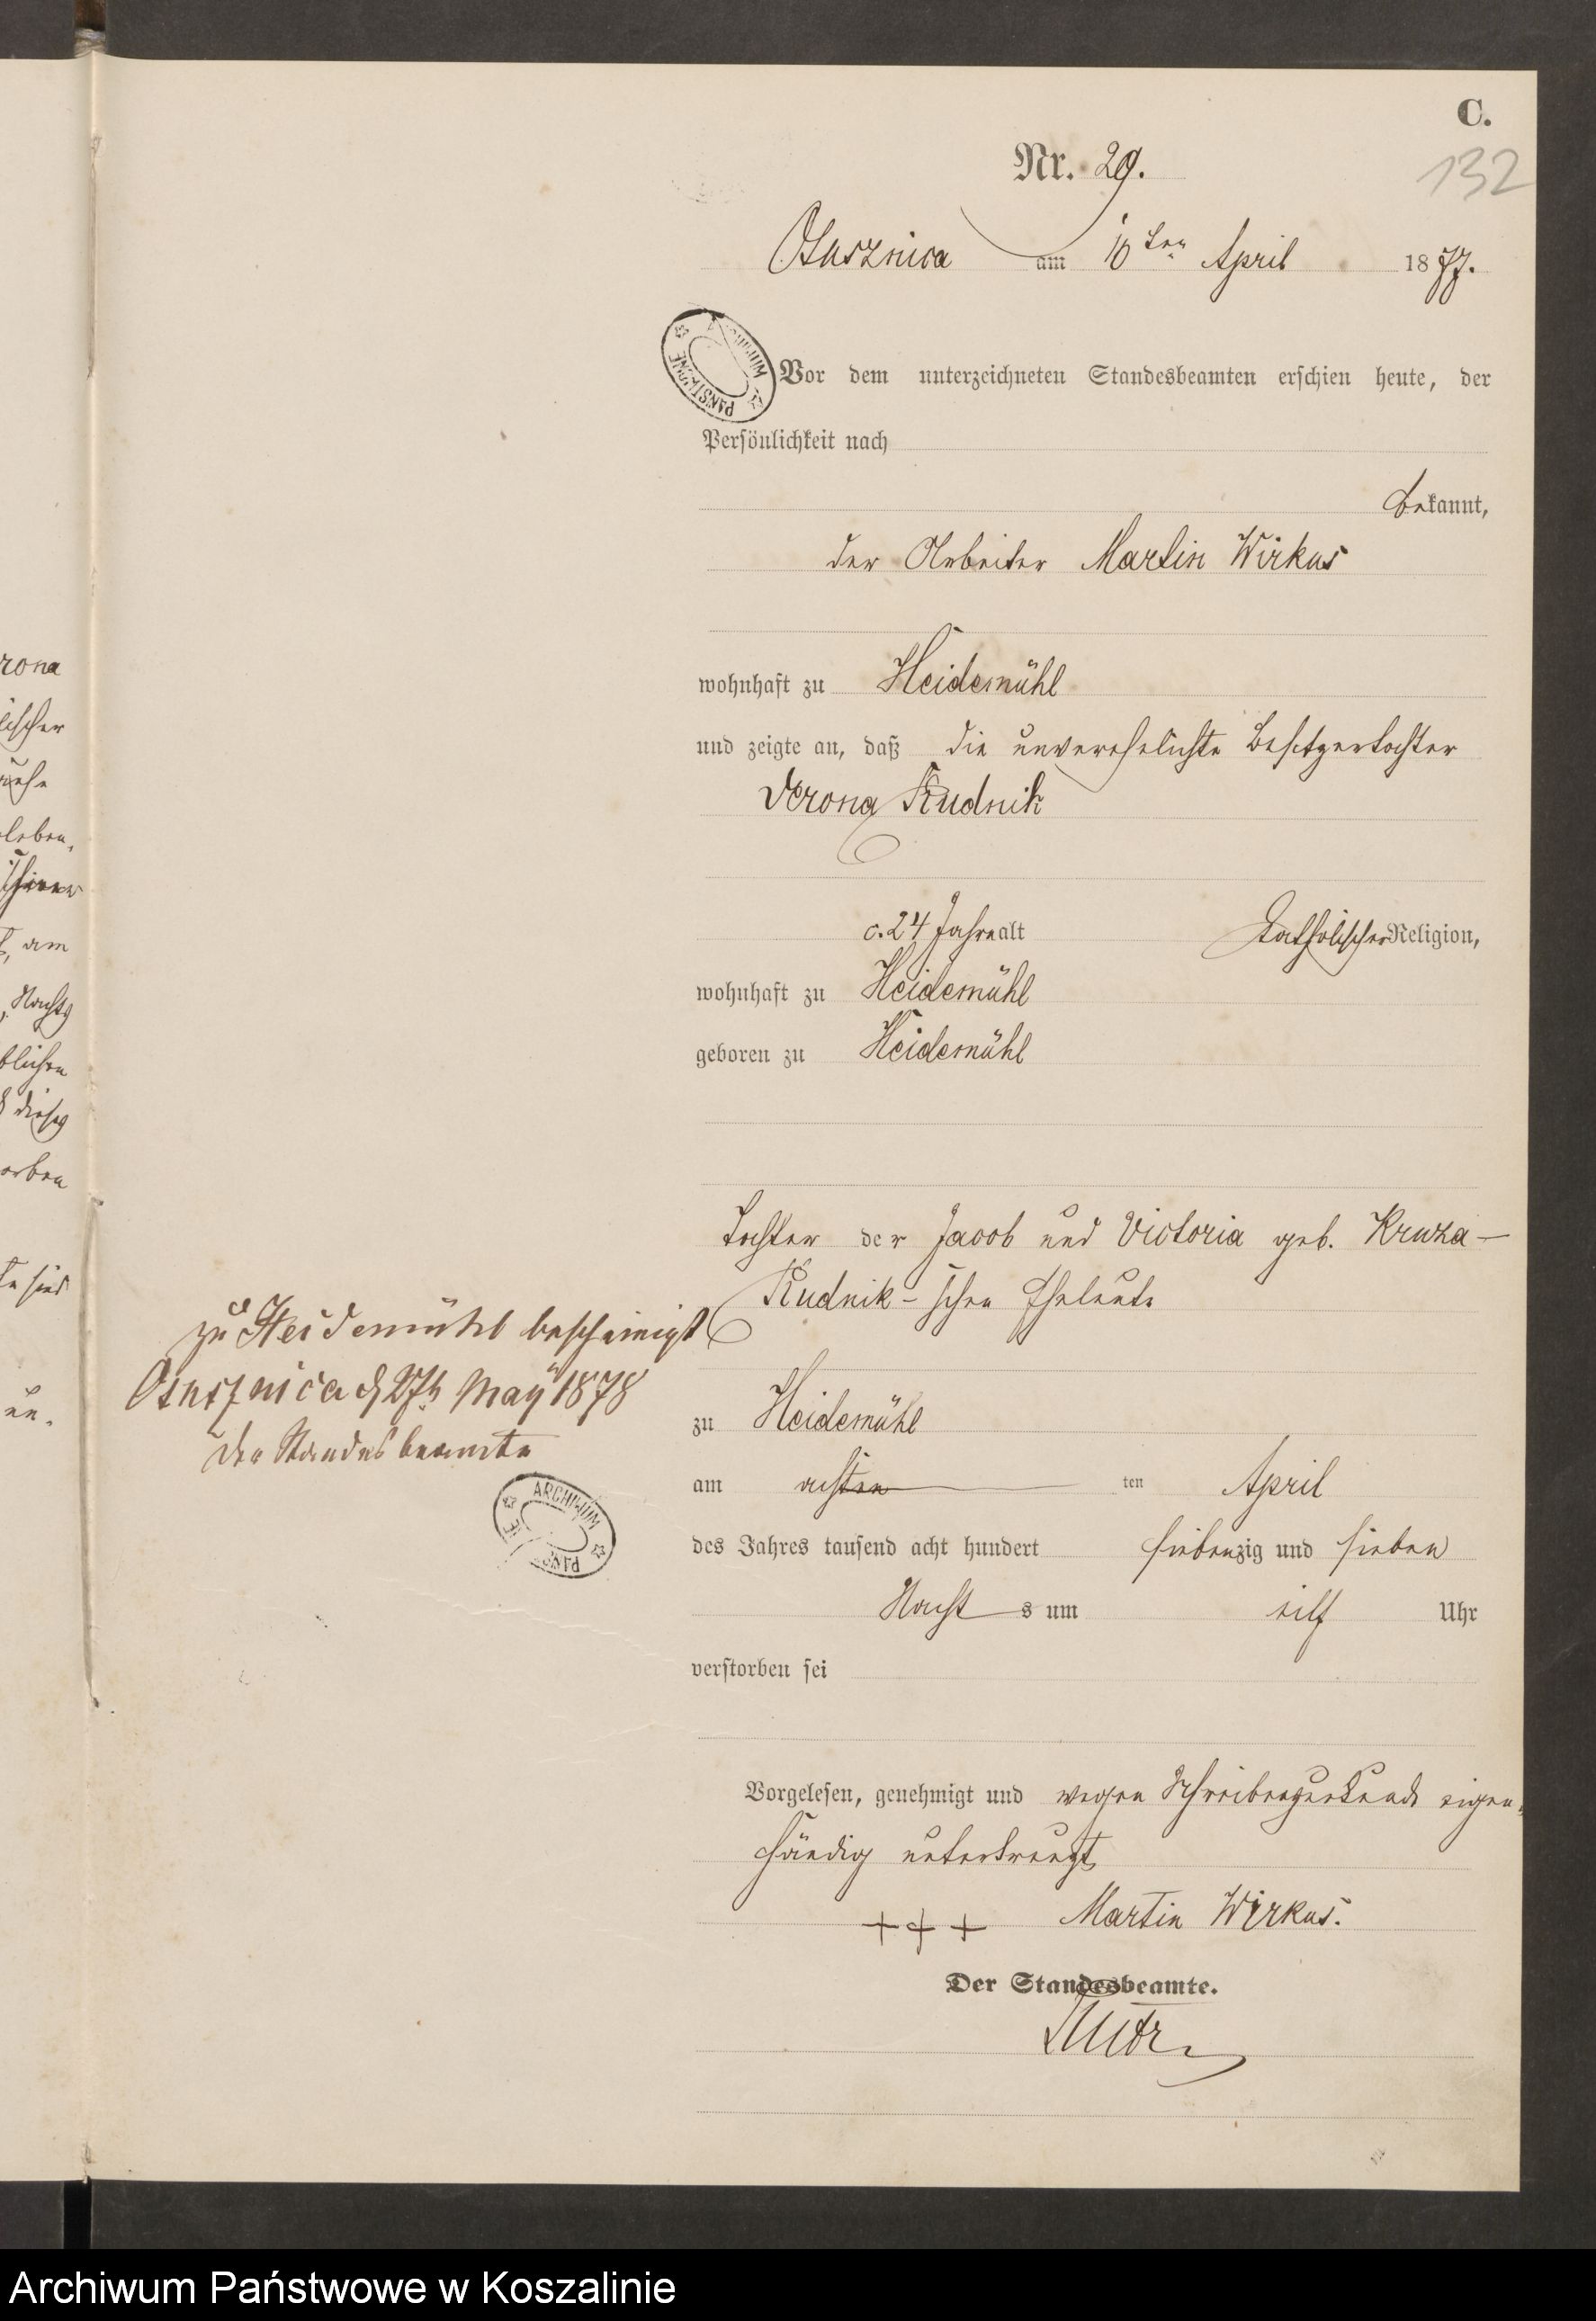 C.
132
Nr. 29.
Osusznica am 10ten April 1877.
Vor dem unterzeichneten Standesbeamten erschien heute, der
Persönlichkeit nach
bekannt,
der Arbeiter Martin Wirkus
wohnhaft zu Heidemühl
und zeigte an, daß die unverehelichte Besitzertochter
Verona Rudnik
c. 24 Jahre alt katholischer Religion,
wohnhaft zu Heidemühl
geboren zu Heidemühl
Tochter der Jacob und Victoria geb. Kruza-
Rudnik-schen Eheleute
zu Heidemühl
am achten ten April
des Jahres tausend acht hundert siebenzig und sieben
Nacht s um eilf Uhr
verstorben sei
Vorgelesen, genehmigt und wegen Schreibensunkunde eigen-
händig unterkreuzt
+++ Martin Wirkus.
Der Standesbeamte.
zu Heidemühl bescheinigt
Osusznica d 27t May 1878
Der Standesbeamte
ARCHIWUM PAŃSTWOWE
ARCHIWUM PAŃSTWOWE
rona
lischer
leben,
am
Nachts
blichen
dieses
orben
sind
Archiwum Państwowe w Koszalinie